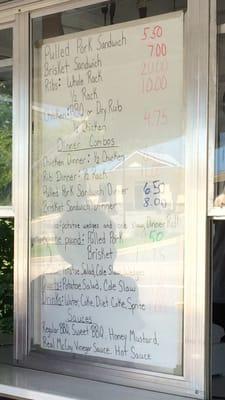 Pulled Pork Sandwich 5.50
Brisket Sandwich 7.00
Ribs: Whole Rack 20.00
½ Rack 10.00
Chicken: BBQ or Dry Rub
½ Chicken 4.75
Dinner Combos
Chicken Dinner: ½ Chicken
Rib Dinner: ½ rack
Pulled Pork Sandwich Dinner 6.50
Brisket Sandwich Dinner 8.00
potatoe wedges and cole slaw, Dinner Roll
pound: Pulled Pork
Brisket
Potatoe Salad, Cole Slaw
Potatoe Salad, Cole Slaw
Drinks: Water, Coke, Diet Coke, Sprite
Sauces
Regular BBQ, Sweet BBQ, Honey Mustard,
Real McCoy Vinegar Sauce, Hot Sauce